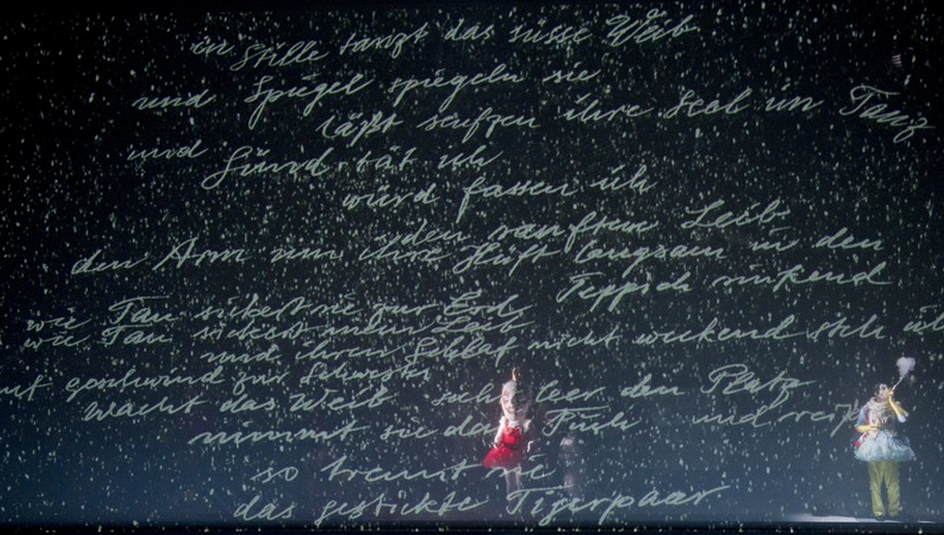 in Stille tanzt das süsse Weib
und Spiegel spiegeln sie
läßt seufzen ihre Seel im Tanz
und Sünd tät ich
würd fassen ich
den sanften Leib
den Arm um ihre Hüft langsam in den
Teppich sinkend
wie Tau sickert sie zur Erd
wie Tau sickert mein Leib
und ihren Schlaf nicht weckend
geschwind zur Schwester
wacht das Weib sieht leer den Platz
nimmt sie das Tuch und
so trennt sie
das gestickte Tigerpaar